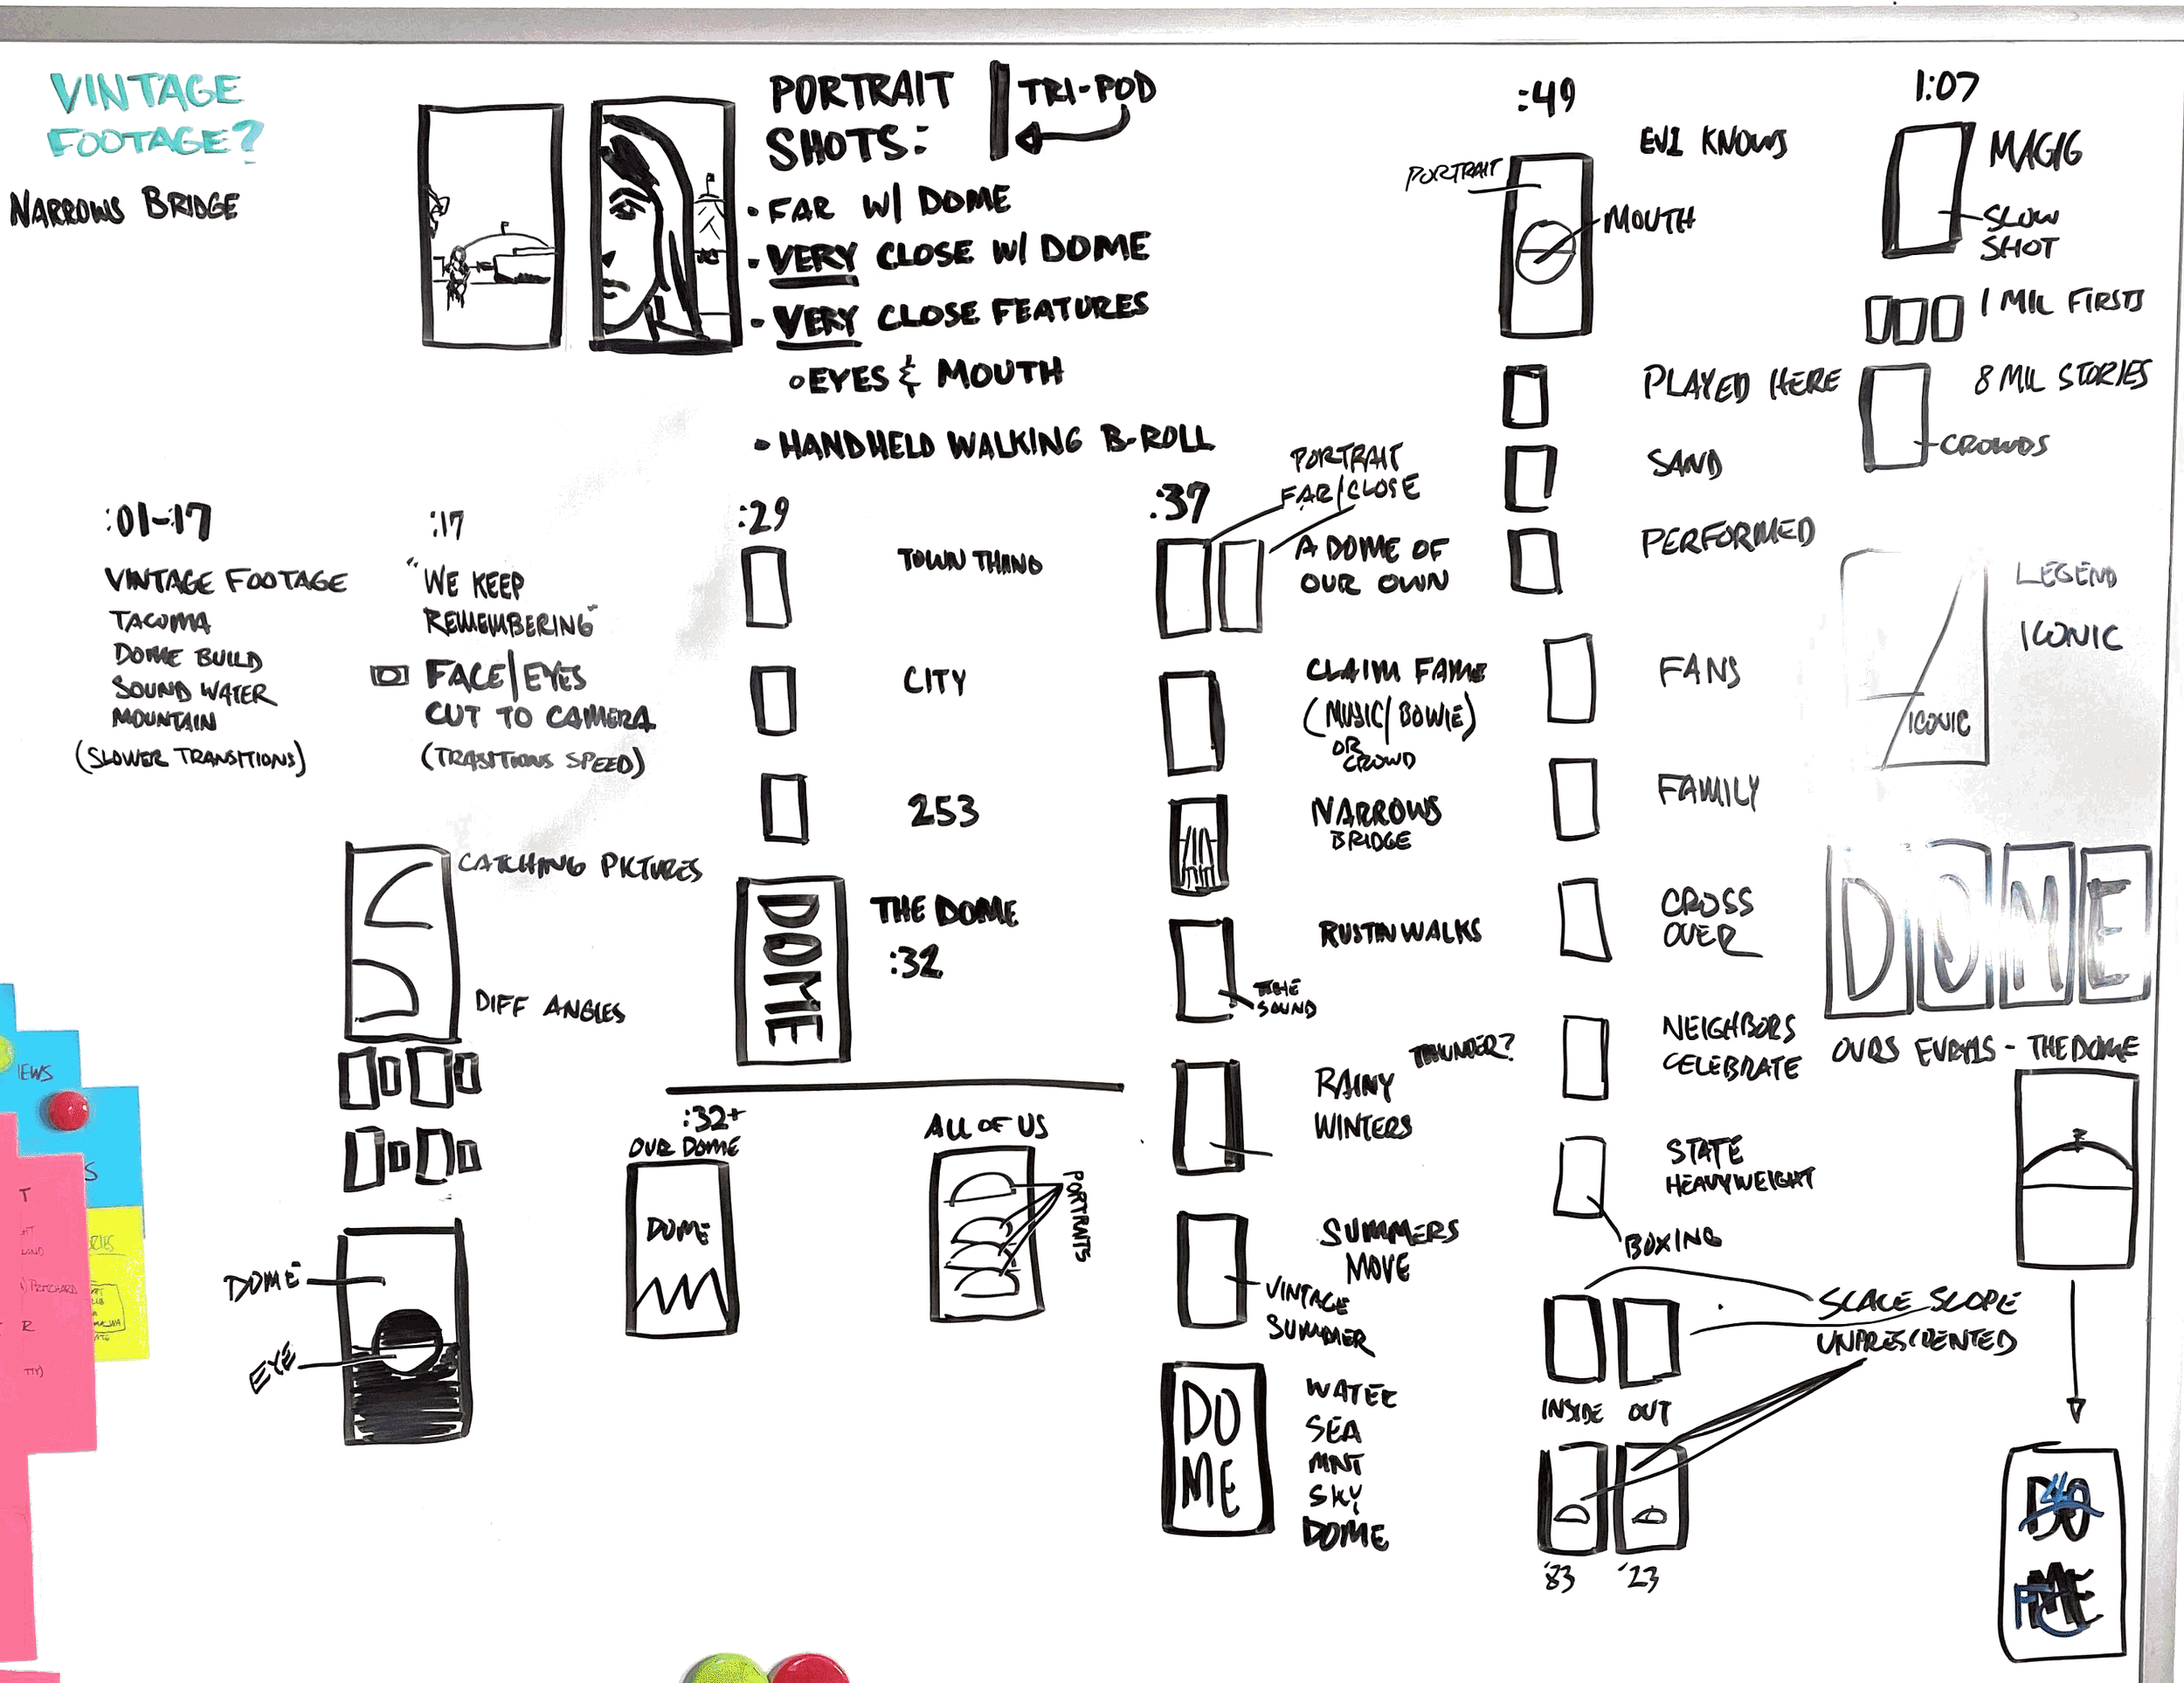 VINTAGE
FOOTAGE?
NARROWS BRIDGE
PORTRAIT
SHOTS:
TRI-POD
• FAR W/ DOME
• VERY CLOSE W/ DOME
• VERY CLOSE FEATURES
◦ EYES & MOUTH
• HANDHELD WALKING B-ROLL
:01-17
VINTAGE FOOTAGE
TACOMA
DOME BUILD
SOUND WATER
MOUNTAIN
(SLOWER TRANSITIONS)
:17
"WE KEEP
REMEMBERING"
FACE/EYES
CUT TO CAMERA
(TRASITIONS SPEED)
CATCHING PICTURES
DIFF ANGLES
DOME
EYE
:29
TOWN THING
CITY
253
DOME
THE DOME
:32
:32+
OUR DOME
DOME
ALL OF US
PORTRAITS
:37
PORTRAIT
FAR/CLOSE
A DOME OF
OUR OWN
CLAIM FAME
(MUSIC/BOWIE)
OR
CROWD
NARROWS
BRIDGE
RUSTIN WALKS
THE
SOUND
THUNDER?
RAINY
WINTERS
SUMMERS
MOVE
VINTAGE
SUMMER
DO
ME
WATER
SEA
MNT
SKY
DOME
:49
EVI KNOWS
PORTRAIT
MOUTH
PLAYED HERE
SAND
PERFORMED
FANS
FAMILY
CROSS
OVER
NEIGHBORS
CELEBRATE
STATE
HEAVYWEIGHT
BOXING
SCALE SCOPE
INSIDE OUT
'83 '23
1:07
MAGIG
SLOW
SHOT
1 MIL FIRSTS
8 MIL STORIES
CROWDS
LEGEND
ICONIC
ICONIC
DOME
OURS - THE DOME
DO
ME
EWS
S
T
R